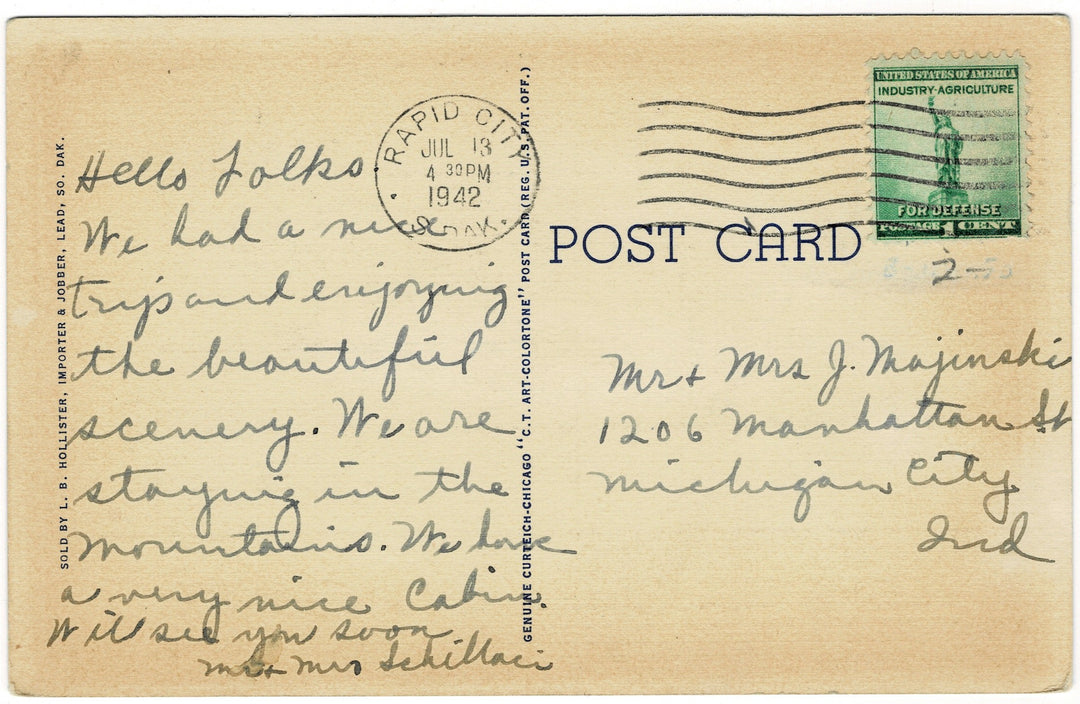 SOLD BY L. B. HOLLISTER, IMPORTER & JOBBER, LEAD, SO. DAK.
Hello Folks
We had a nice
trip and enjoying
the beautiful
scenery. We are
staying in the
mountains. We have
a very nice Cabin.
Will see you soon
Mr + Mrs Schillaci
GENUINE CURTEICH-CHICAGO "C.T. ART-COLORTONE" POST CARD (REG. U.S. PAT. OFF.)
RAPID CITY
JUL 13
4 30 PM
1942
S. DAK.
UNITED STATES OF AMERICA
INDUSTRY-AGRICULTURE
FOR DEFENSE
POSTAGE 1 CENT
POST CARD
2-
Mr + Mrs J. Majinski
1206 Manhattan St
Michigan City
Ind